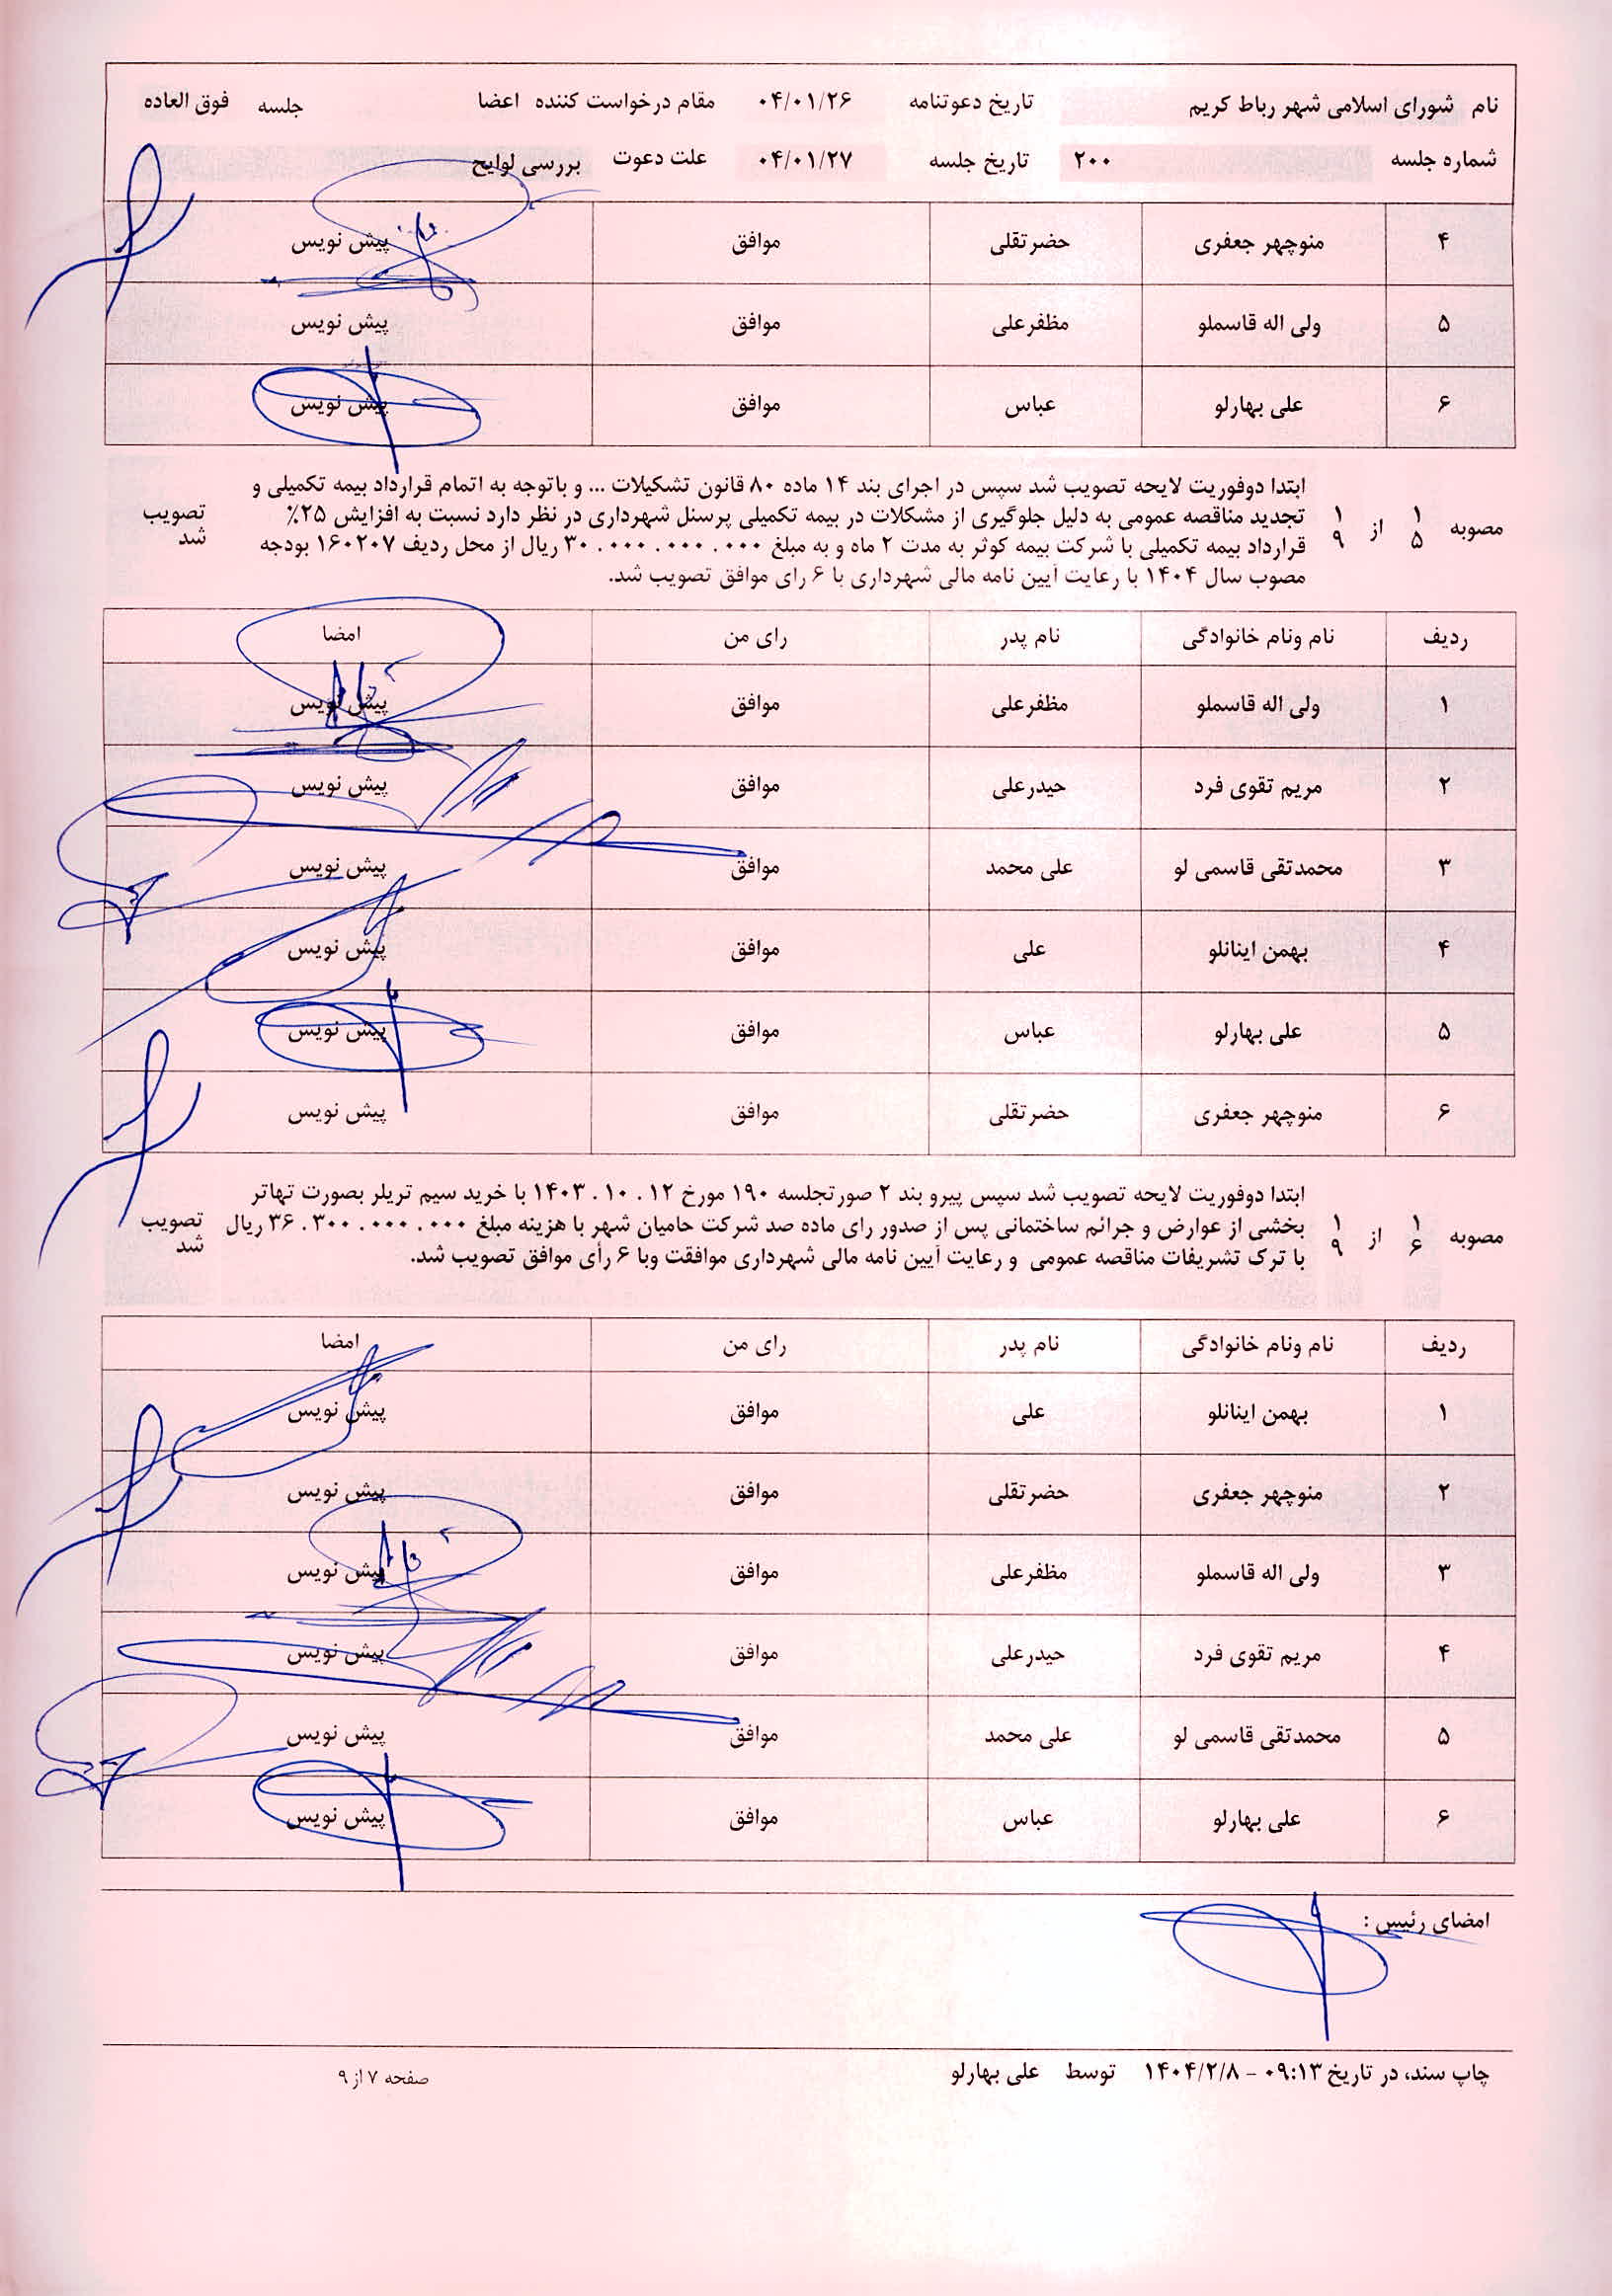 نام شورای اسلامی شهر رباط کریم تاریخ دعوتنامه ۰۴/۰۱/۲۶ مقام درخواست کننده اعضا جلسه فوق العاده
شماره جلسه ۲۰۰ تاریخ جلسه ۰۴/۰۱/۲۷ علت دعوت بررسی لوایح
۴ منوچهر جعفری حضرتقلی موافق پیش نویس
۵ ولی اله قاسملو مظفرعلی موافق پیش نویس
۶ علی بهارلو عباس موافق پیش نویس
مصوبه ۱۵ از ۱۹
ابتدا دوفوریت لایحه تصویب شد سپس در اجرای بند ۱۴ ماده ۸۰ قانون تشکیلات ... و باتوجه به اتمام قرارداد بیمه تکمیلی و
تجدید مناقصه عمومی به دلیل جلوگیری از مشکلات در بیمه تکمیلی پرسنل شهرداری در نظر دارد نسبت به افزایش ۲۵٪
قرارداد بیمه تکمیلی با شرکت بیمه کوثر به مدت ۲ ماه و به مبلغ ۳۰.۰۰۰.۰۰۰.۰۰۰ ریال از محل ردیف ۱۶۰۲۰۷ بودجه
مصوب سال ۱۴۰۴ با رعایت آیین نامه مالی شهرداری با ۶ رای موافق تصویب شد.
تصویب شد
ردیف نام ونام خانوادگی نام پدر رای من امضا
۱ ولی اله قاسملو مظفرعلی موافق پیش نویس
۲ مریم تقوی فرد حیدرعلی موافق پیش نویس
۳ محمدتقی قاسمی لو علی محمد موافق پیش نویس
۴ بهمن اینانلو علی موافق پیش نویس
۵ علی بهارلو عباس موافق پیش نویس
۶ منوچهر جعفری حضرتقلی موافق پیش نویس
مصوبه ۱۶ از ۱۹
ابتدا دوفوریت لایحه تصویب شد سپس پیرو بند ۲ صورتجلسه ۱۹۰ مورخ ۱۴۰۳.۱۰.۱۲ با خرید سیم تریلر بصورت تهاتر
بخشی از عوارض و جرائم ساختمانی پس از صدور رای ماده صد شرکت حامیان شهر با هزینه مبلغ ۳۶.۳۰۰.۰۰۰.۰۰۰ ریال
با ترک تشریفات مناقصه عمومی و رعایت آیین نامه مالی شهرداری موافقت وبا ۶ رأی موافق تصویب شد.
تصویب شد
ردیف نام ونام خانوادگی نام پدر رای من امضا
۱ بهمن اینانلو علی موافق پیش نویس
۲ منوچهر جعفری حضرتقلی موافق پیش نویس
۳ ولی اله قاسملو مظفرعلی موافق پیش نویس
۴ مریم تقوی فرد حیدرعلی موافق پیش نویس
۵ محمدتقی قاسمی لو علی محمد موافق پیش نویس
۶ علی بهارلو عباس موافق پیش نویس
امضای رئیس :
چاپ سند، در تاریخ ۰۹:۱۳ - ۱۴۰۴/۲/۸ توسط علی بهارلو صفحه ۷ از ۹